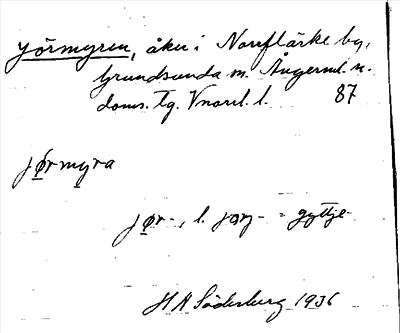 Jörmyren, åker i Norrflärke by,
Grundsunda sn. Ångerml. n.
doms. Tg. Vnorrl. l. 87
jørmyra
jør-, l. jorj- = gyttje-
H A Söderberg 1936